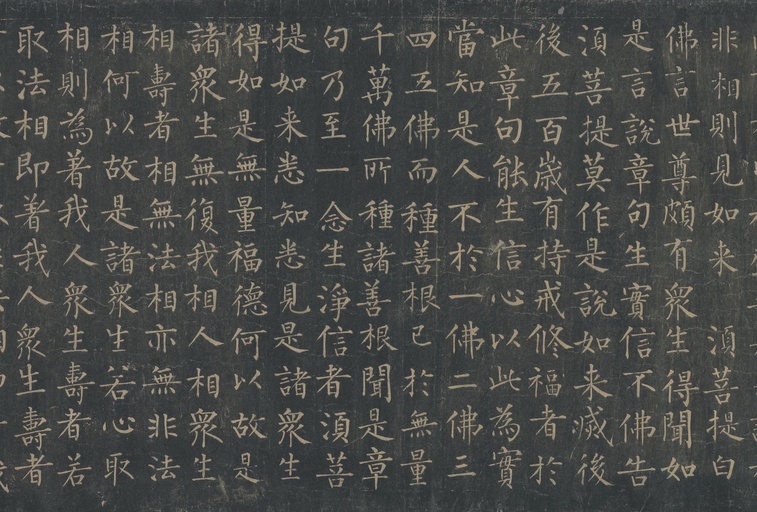 非相則見如来 須菩提白
佛言世尊頗有衆生得聞如
是言說章句生實信不佛告
須菩提莫作是說如来滅後
後五百歲有持戒修福者於
此章句能生信心以此為實
當知是人不於一佛二佛三
四五佛而種善根已於無量
千萬佛所種諸善根聞是章
句乃至一念生淨信者須菩
提如来悉知悉見是諸衆生
得如是無量福德何以故是
諸衆生無復我相人相衆生
相壽者相無法相亦無非法
相何以故是諸衆生若心取
相則為著我人衆生壽者若
取法相即著我人衆生壽者